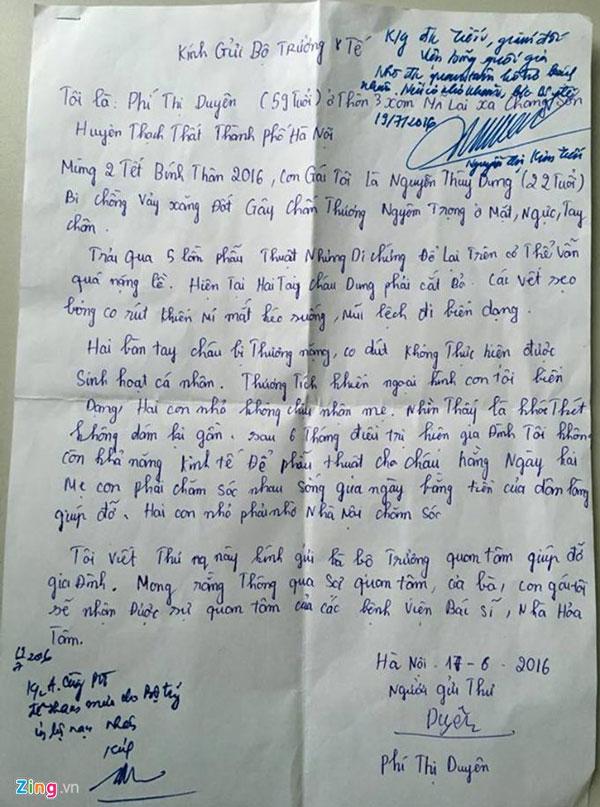 Kính Gửi Bộ Trưởng Y Tế
K/g đ/c Tiến, giám đốc
Viện bỏng quốc gia
Nhờ đ/c quan tâm hỗ trợ bệnh
nhân. Nếu có khó khăn, b/c Bộ Y tế
19/7/2016
Nguyễn Thị Kim Tiến
Tôi là: Phí Thị Duyên (59 Tuổi) ở Thôn 3 xóm Mn Lai xã Chàng Sơn
Huyện Thạch Thất Thành phố Hà Nội
Mùng 2 Tết Bính Thân 2016, con Gái Tôi là Nguyễn Thùy Dung (22 Tuổi)
Bị chồng Vảy xăng Đốt Gây chấn Thương Ngyêm Trọng ở Mặt, Ngực, Tay
chân.
Trải qua 5 lần phẫu Thuật Nhưng Di chứng Để Lại Trên cơ Thể vẫn
quá nặng lề. Hiện Tai Hai Tai cháu Dung phải cắt Bỏ. Các vết sẹo
bỏng co rút khiến mí mắt kéo xuống, mũi lệch đi biến dạng.
Hai bàn tay cháu bị Thương nặng, co dút không Thực hiện được
Sinh hoạt cá nhân. Thương Tích khiến ngoại hình con tôi biến
Dạng Hai con nhỏ không chịu nhận mẹ. Nhìn Thấy là khóc Thét
không dám lại gần. sau 6 Tháng điều trị hiện gia Đình Tôi không
còn khả năng kinh tế Để phẫu thuật cho cháu hằng Ngày hai
Mẹ con phải chăm sóc nhau sống qua ngày bằng tiền của dân làng
giúp đỡ. Hai con nhỏ phải nhờ Nhà Nội chăm sóc
Tôi viết Thư nạ này kính gửi bà bộ Trưởng quan tâm giúp đỡ
gia Đình. Mong rằng Thông qua Sự quan tâm, của bà, con gái tôi
sẽ nhận Được sự quan tâm của các bệnh viện Bác sĩ, Nhà Hỏa
Tâm.
Hà Nội. 17-6. 2016
Người gửi Thư
Duyên
Phí Thị Duyên
2016
Zing.vn